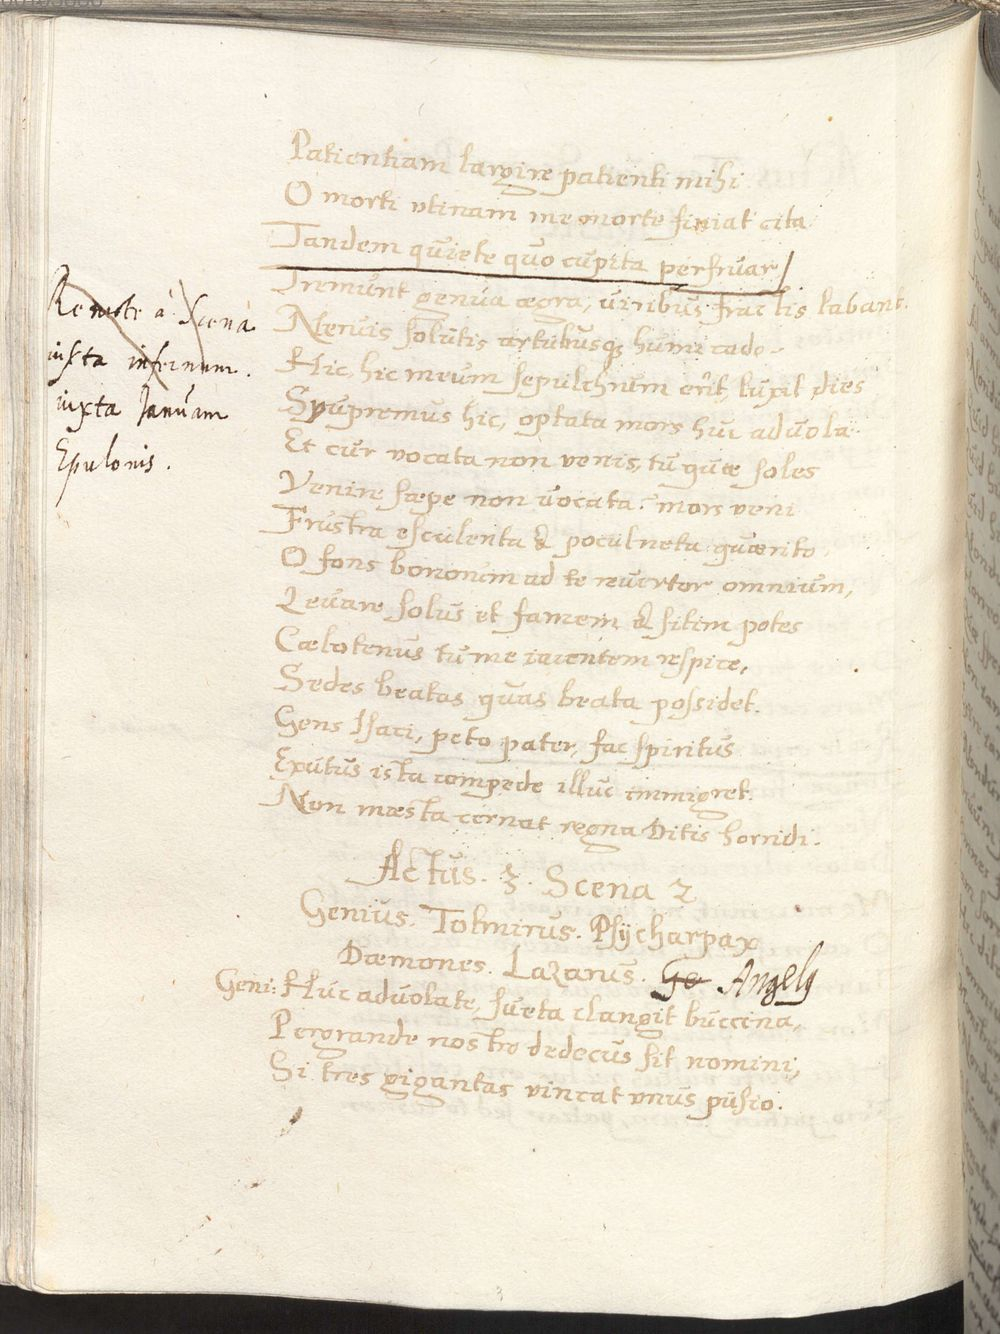 Patientiam largire patienti mihi
O morti vtinam me morte finiat cita
Tandem quiete quo cupita perfruar
Tremunt genua ægra, viribus fractis labant.
Neruis solutis artubusq; humi cado.
Hic hic meum sepulchrum erit, luxit dies
Supremus hic, optata mors huc aduola.
Et cur vocata non venis, tu quæ soles
Venire sæpe non vocata. mors veni
Frustra esculenta & poculneta quærito
O fons bonorum ad te reuertor omnium,
Leuare solus et famem & sitim potes
Cælotenus tu me iacentem respice,
Sedes beatas quas beata possidet.
Gens Isaci, peto pater, fac spiritus
Exutus ista compede illuc immigret.
Non mæsta cernat regna Ditis horridi.
Remote à Scena
iuxta infernum.
iuxta Januam
Epulonis.
Actus. 3. Scena 2
Genius. Tolmirus. Psÿcharpax
Dæmones. Lazarus. Ge Angelÿ
Geni: Huc aduolate, sueta clangit buccina,
Pergrande nostro dedecus sit nomini,
Si tres gigantas vincat vnus pusio.